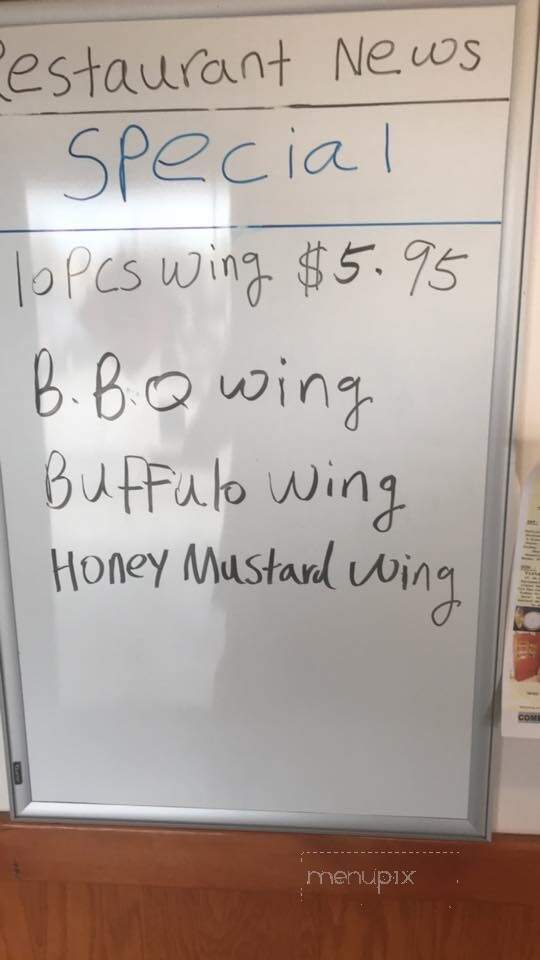 Restaurant News
Special
10 PCS wing $5.95
B.B.Q wing
Buffulo Wing
Honey Mustard Wing
COM
menupix